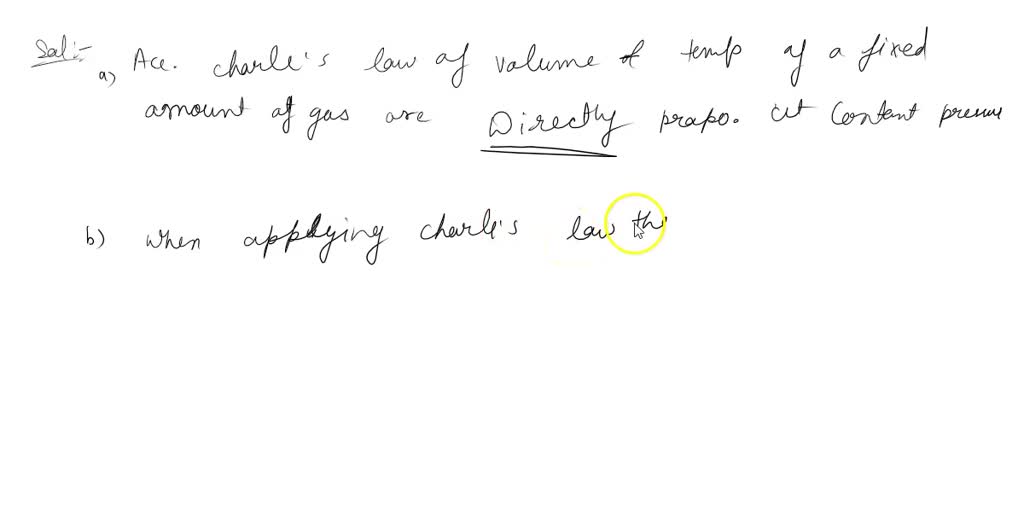 Sol:-
a) Acc. charle's law of volume & temp of a fixed
amount of gas are Directly prapo. at Contant presure
b) when applying charle's law thi